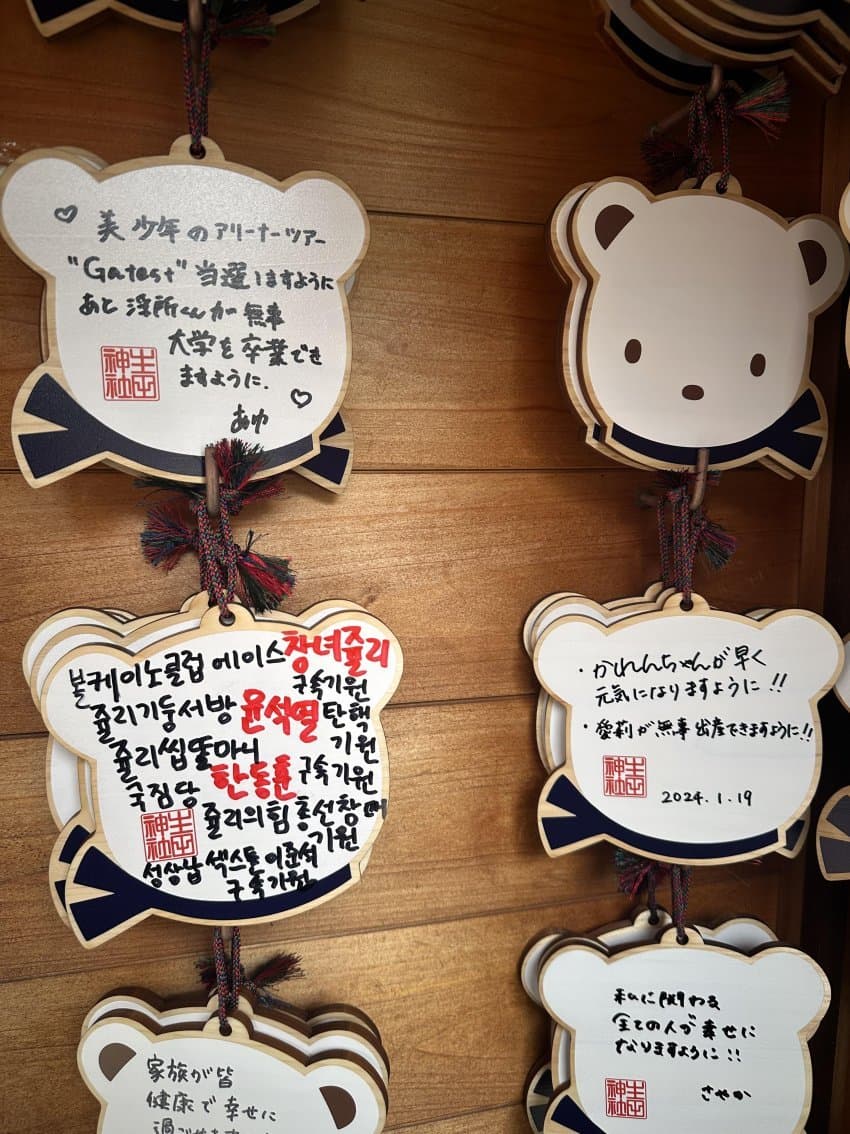 美 少年のアリーナーツアー
"Gatest" 当選しますように
あと 浮所くんが 無事
大学を卒業でき
ますように.
あゆ
生田
神社
볼케이노클럽 에이스 창녀쥴리
구속기원
쥴리기둥서방 윤석열 탄핵
기원
쥴리씹똘마니 한동훈 구속기원
국짐당
쥴리의힘 총선창패
기원
성상납 섹스톤 이준석
구속기원
生田
神社
・かれんちゃんが早く
元気になりますように!!
・愛莉が無事出産できますように!!
生田
神社
2024.1.19
私に関わる
全ての人が幸せに
なりますように!!
さやか
生田
神社
家族が皆
健康で幸せに